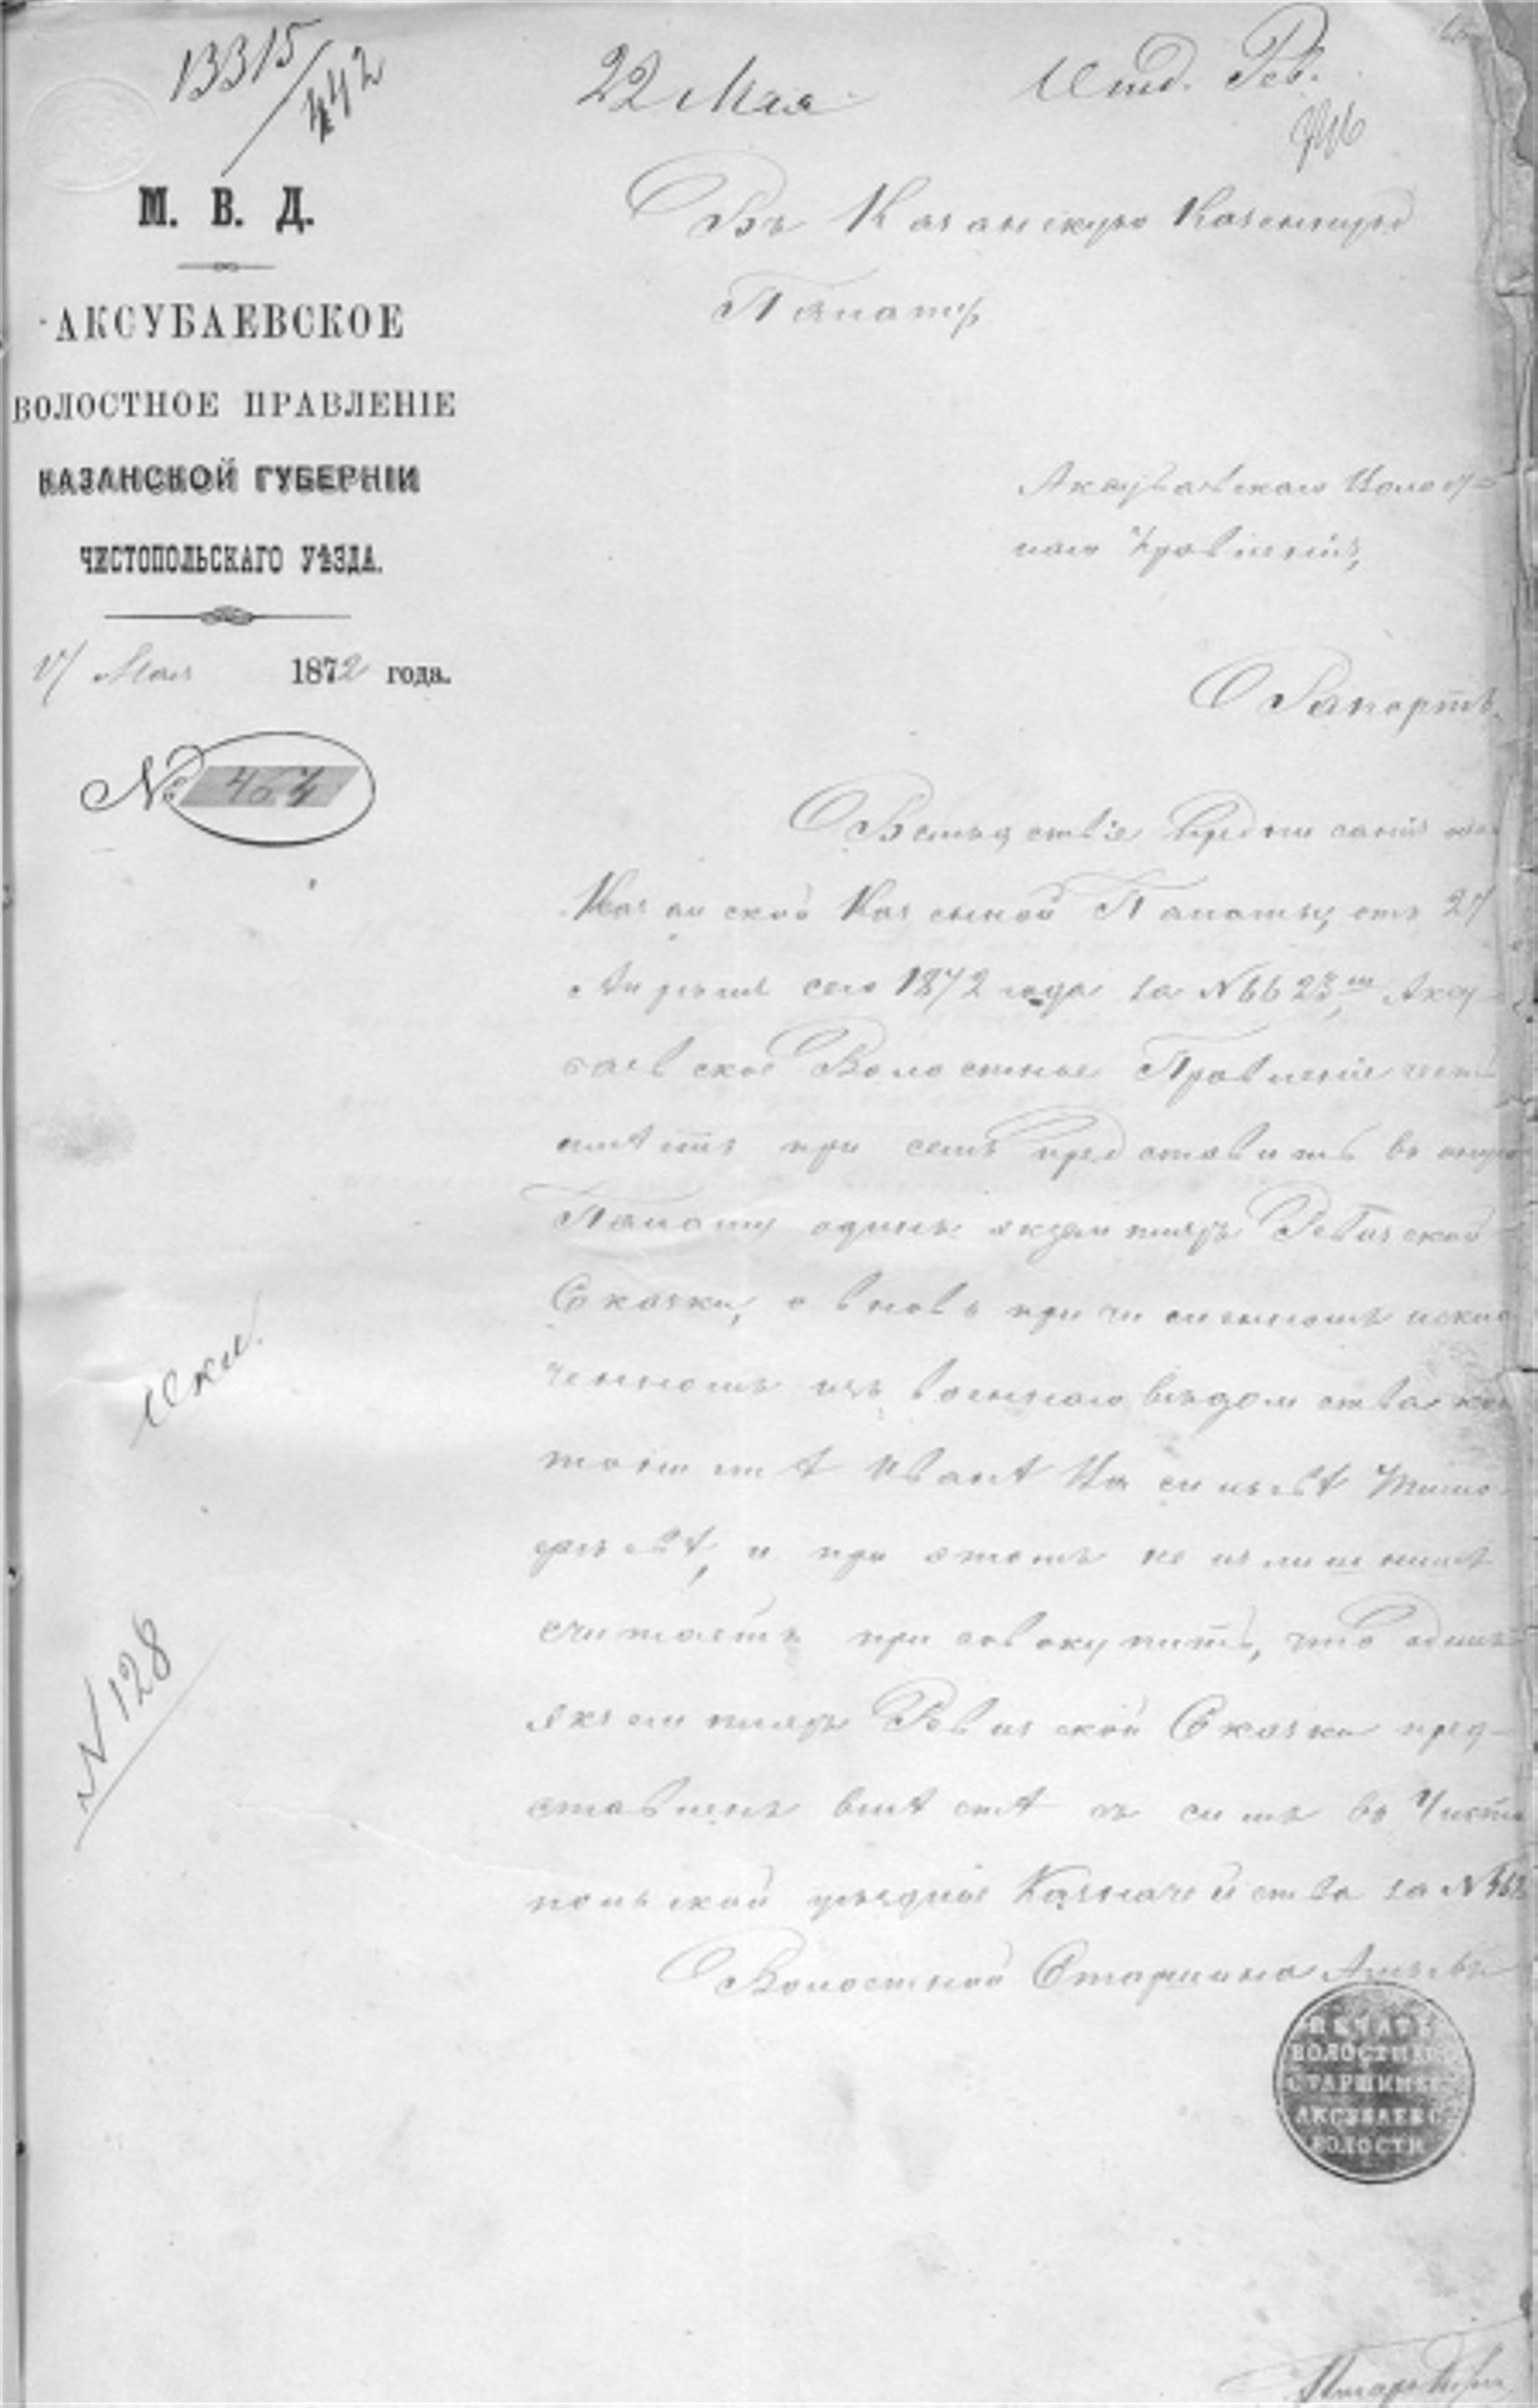 13315/442
22 Мая
М. В. Д.
АКСУБАЕВСКОЕ
ВОЛОСТНОЕ ПРАВЛЕНІЕ
КАЗАНСКОЙ ГУБЕРНІИ
ЧИСТОПОЛЬСКАГО УѢЗДА.
Мая 1872 года.
№ 464
Въ Казанскую Казенную
Палату
Аксубаевскаго Волост-
наго Правленія,
Рапортъ.
Вслѣдствіе предписанія
Казанской Казенной Палаты, отъ 27
Апрѣля сего 1872 года за № 6623, Аксу-
баевское Волостное Правленіе честь
имѣетъ при семъ представить въ оную
Палату одинъ экземпляръ Ревизской
Сказки, о вновь причисленномъ исклю-
ченномъ изъ военнаго вѣдомства кан-
тонистѣ Иванѣ Васильевѣ Тимо-
фѣевѣ, и при этомъ не излишнимъ
считаетъ присовокупить, что одинъ
экземпляръ Ревизской Сказки пред-
ставленъ вмѣстѣ съ симъ въ Чисто-
польской уѣздное Казначейство за №
Волостной Старшина
ПЕЧАТЬ
ВОЛОСТНАГО
СТАРШИНЫ
АКСУБАЕВС
ВОЛОСТИ
N 128